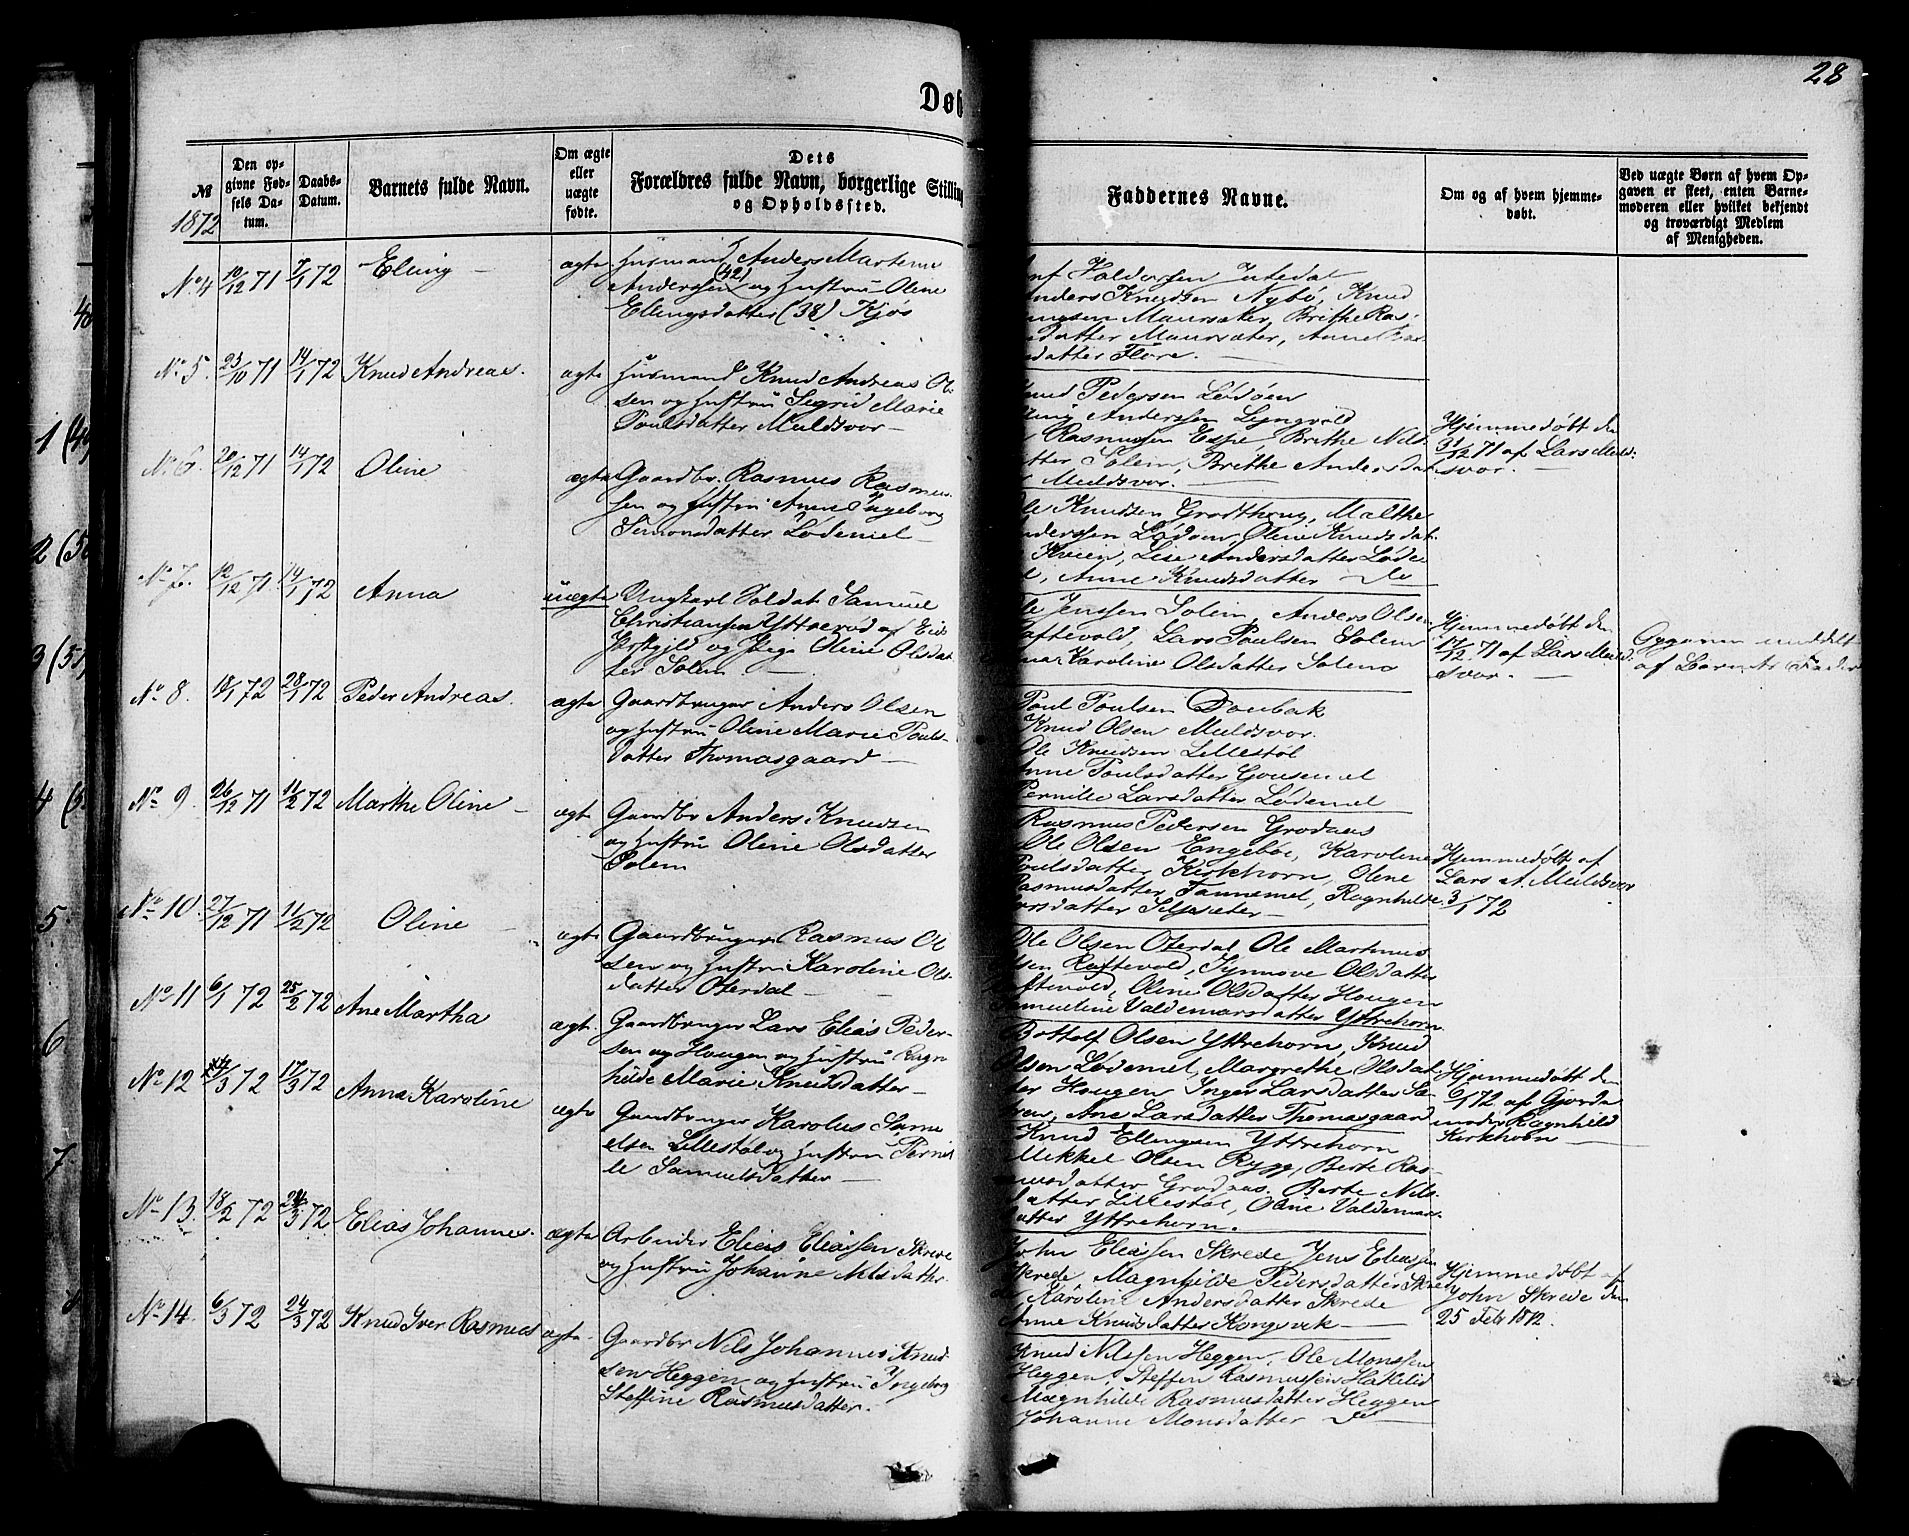 28
Døb
№
1872
Den op-
givne Fød-
sels Da-
tum.
Daabs-
Datum.
Barnets fulde Navn.
Om ægte
eller
uægte
fødte.
Dets
Forældres fulde Navn, borgerlige Stilling
og Opholdssted.
Faddernes Navne.
Om og af hvem hjemme-
døbt.
Ved uægte Børn af hvem Op-
gaven er skeet, enten Barne-
moderen eller hvilket bekjendt
og troværdigt Medlem
af Menigheden.
No 4 10/12 71 7/1 72 Elling
ægte Husmand Anders Martinu
Anderssen (42) og Hustru Oline
Ellingsdatter (38) Kjøs
Haldorsen
Anders Knudsen Nybø, Knud
Maursæter, Brithe Ras-
datter Maursæter, Anne
datter Flore.
No 5. 23/10 71 14/1 72 Knud Andreas.
ægte Husmand Knud Andreas Ol-
sen og Hustru Segrid Marie
Poulsdatter Muldsvor
Knud Pedersen Lødøen
Anderssen Lyngvold
Rasmussen Espe, Brithe Nils-
datter Solem, Brithe Andersdat
Muldsvor.
Hjemmedøbt den
31/12 71 af Lars Muld-
svor.
No 6. 20/12 71 14/1 72 Oline
ægte Gaardbr. Rasmus Rasmus-
sen og Hustru Anne Ingeborg
Simonsdatter Lødemel
Ole Knudsen Grodthaug, Malthe
Anderssen Lødøen, Oline Knudsdat.
Kveen, Lise Andersdatter Løde-
l, Anne Knudsdatter do
No 7. 12/12 71 14/1 72 Anna
uægte Ungkarl Soldat Samuel
Christiansen Yttrerød af Eids
Præstgjeld og Pige Oline Olsdat-
ter Solem
Ole Jenssen Solem, Anders Olsen
Raftevold, Lars Poulsen Solem
Karoline Olsdatter Solem
Hjemmedøbt den
17/12 71 af Lars Muld-
svor.
Opgaven meddelt
af Barnets Fader
No 8. 18/1 72 28/1 72 Peder Andreas.
ægte Gaardbruger Anders Olsen
og Hustru Oline Marie Pouls-
datter Thomasgaard
Poul Poulsen Doubak
Knud Olsen Muldsvor.
Ole Knudsen Lillestøl
Anne Poulsdatter Gousemel
Pernille Larsdatter Lødemel
No 9. 26/12 71 11/2 72 Marthe Oline
ægte Gaardbr Anders Knudsen
og Hustru Oline Olsdatter
Solem
Rasmus Pedersen Grodaas
Ole Olsen Engebøe, Karoline
Poulsdatter Kirkhorn, Oline
Rasmusdatter Tannemel, Ragnhilde
Larsdatter Seljesæter
Hjemmedøbt af
Lars A. Muldsvor
3/1 72
No 10. 27/12 71 11/2 72 Oline
ægte Gaardbruger Rasmus Ol
sen og Hustru Karoline Ols-
datter Oterdal
Ole Olsen Oterdal, Ole Martinus
Olsen Raftevold, Synnove Olsdatter
Raftevold, Oline Olsdatter Hougen
Samueline Valdemarsdatter Yttrehorn
No 11 6/1 72 25/2 72 Ane Martha
ægte Gaardbruger Lars Elias Peder-
sen og Hougen og Hustru Ragn
hilde Marie Knudsdatter
Bottolf Olsen Yttrehorn, Knud
Olsen Lødemel, Margrethe Olsdat
ter Hougen, Inger Larsdatter Sæ-
tren, Ane Larsdatter Thomasgaard
Hjemmedøbt den
6/1 72 af Gjorde
moder Ragnhild
Kirkhorn
No 12 4/3 72 17/3 72 Anna Karoline
ægte Gaardbruger Karolus Samu
elsen Lillestøl og Hustru Pernil
le Samuelsdatter
Knud Ellingsen Yttrehorn
Mikkel Olsen Rygg, Berte Ras-
musdatter Grodaas, Berte Nils-
datter Lillestøl, Oline Valdemars-
datter Yttrehorn.
No 13. 18/2 72 24/3 72 Elias Johannes.
ægte Arbeider Elias Eliassen Skrede
og Hustru Johanne Nilsdatter
John Eliassen Skrede, Jens Eliassen
Skrede, Magnhilde Pedersdatter Skre
de, Karoline Andersdatter Skrede
Anne Knudsdatter Kongsvik
Hjemmedøbt af
John Skrede den
25 Febr 1872.
No 14. 6/3 72 24/3 72 Knud Iver Rasmus
ægte Gaardbr Nils Johannes Knud
sen Heggen og Hustru Ingeborg
Steffine Rasmusdatter.
Knud Nilssen Heggen, Ole Monssen
Heggen, Steffen Rasmussen Hakelid
Magnhilde Rasmusdatter Heggen
Johanne Monsdatter do
1 (4
2 (5
3 (51
4 (5
5.
6
7